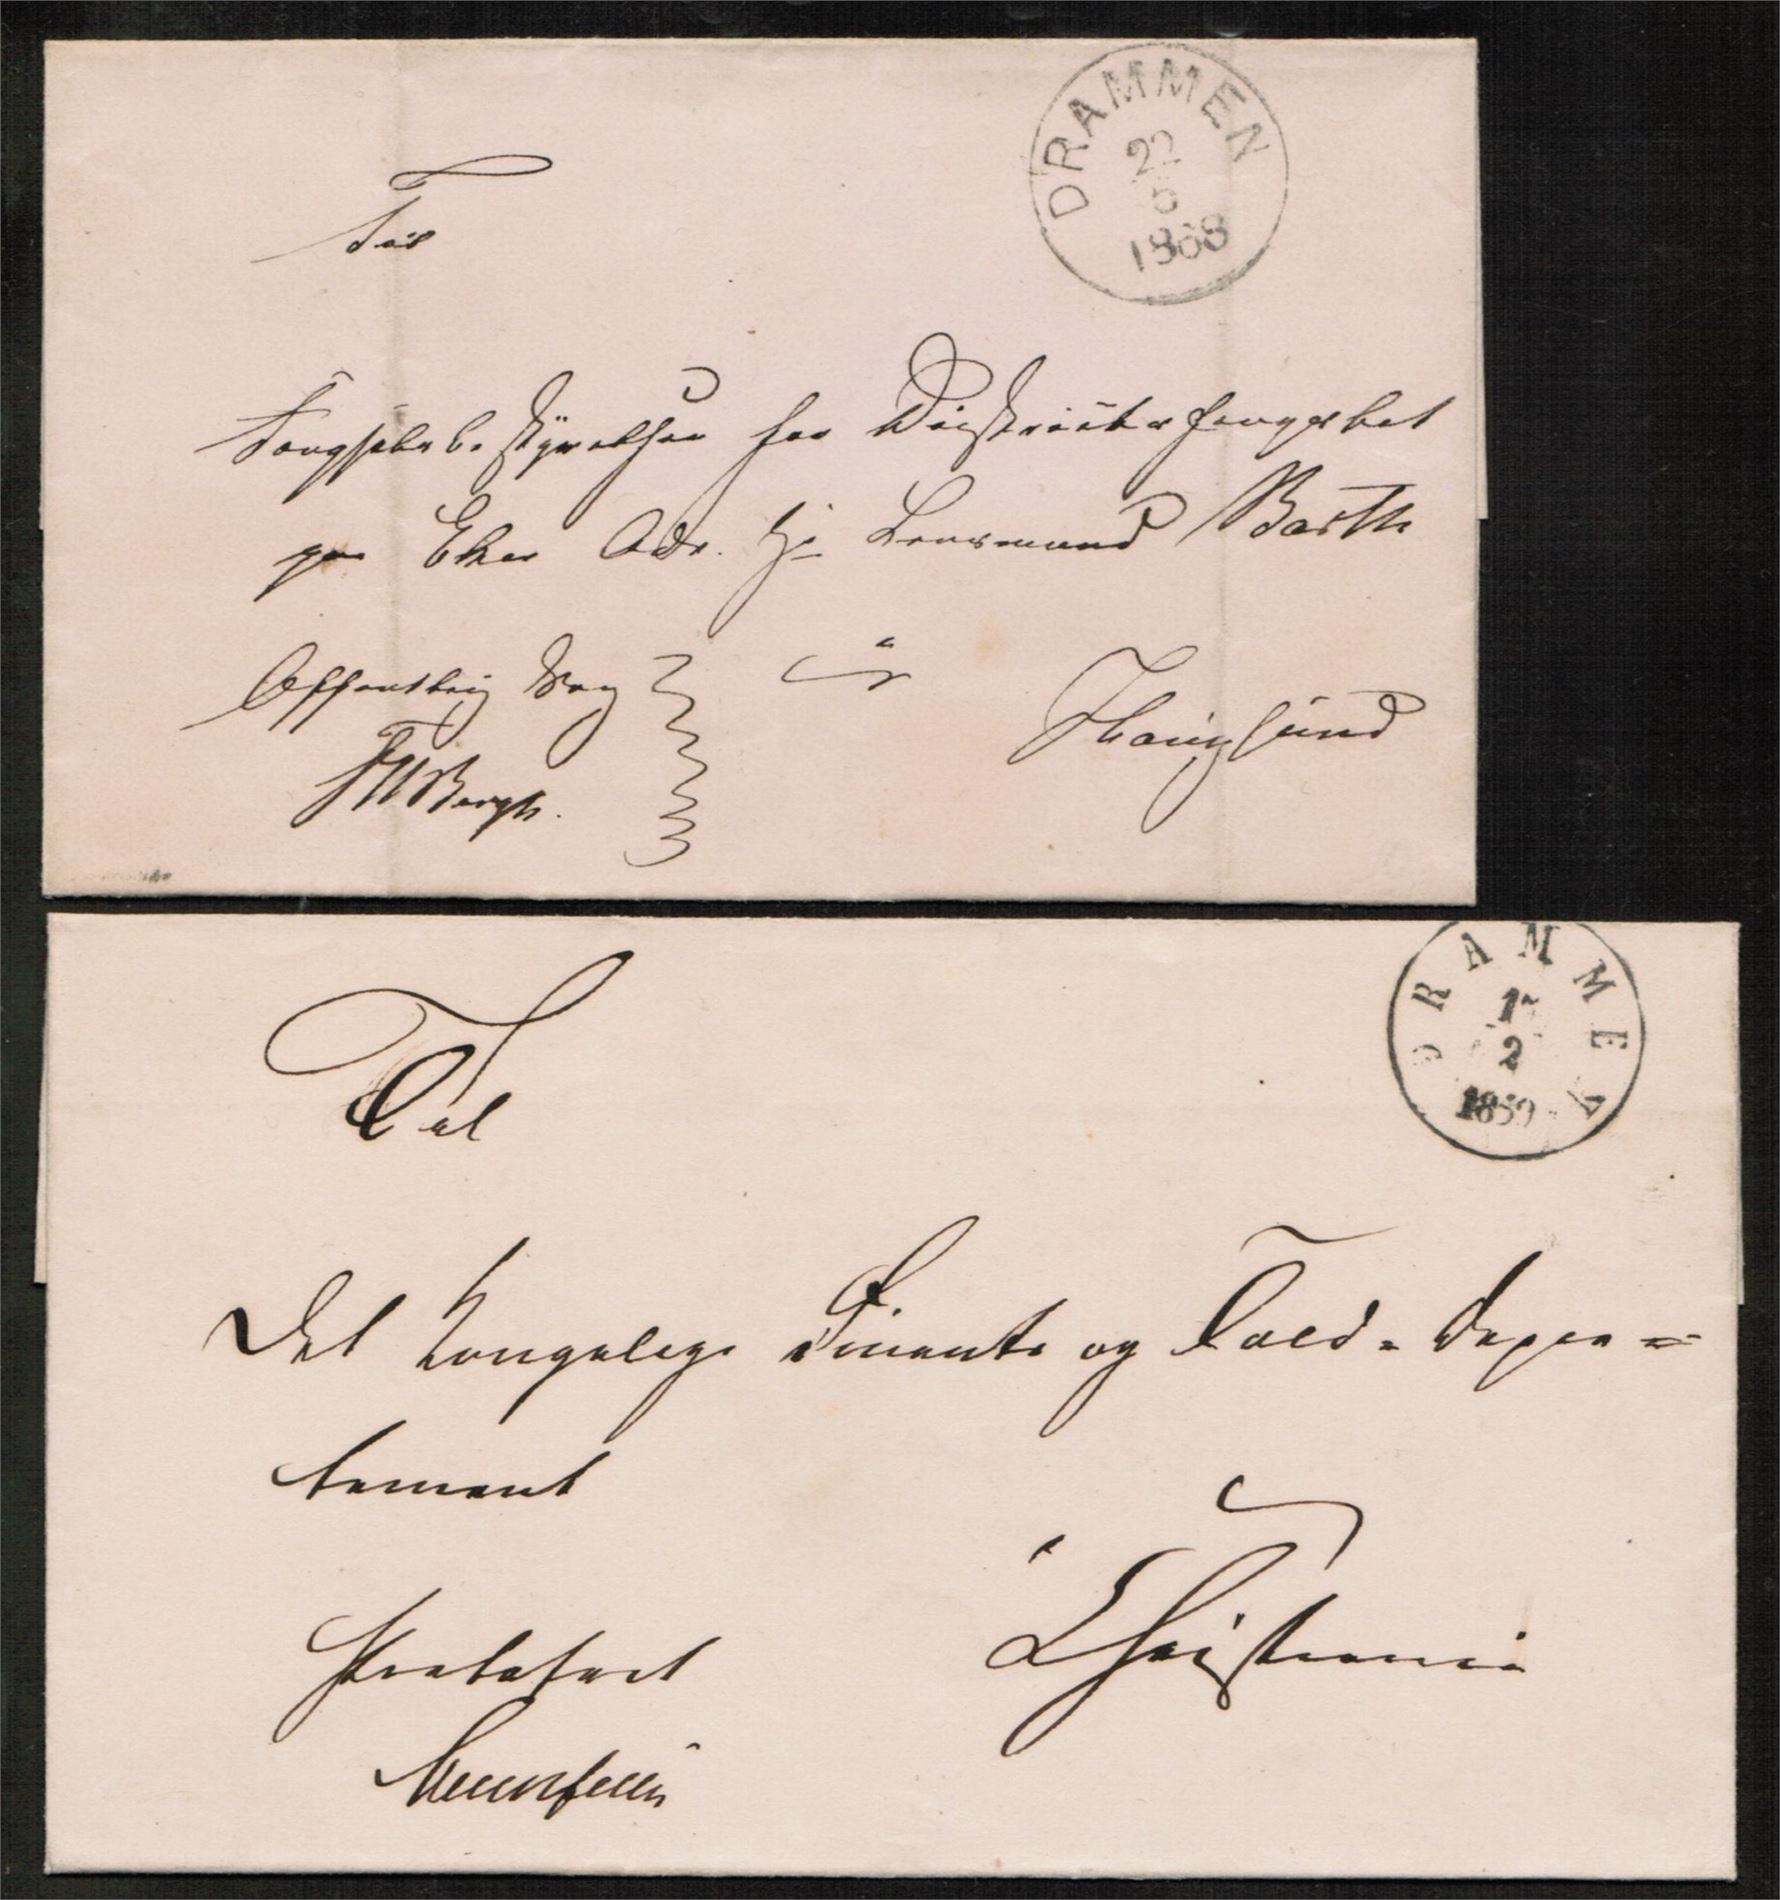 DRAMMEN
22
5
1868
Til
Fængselsbestyrelsen for Districtsfængslet
paa Eker Adr. Hr Lensmand Barth
Offentlig Sag
i
Haugsund
Bergh.
DRAMMEN
2
1859
Til
Det kongelige Finants og Told-Depar=
tement
i
Christiania